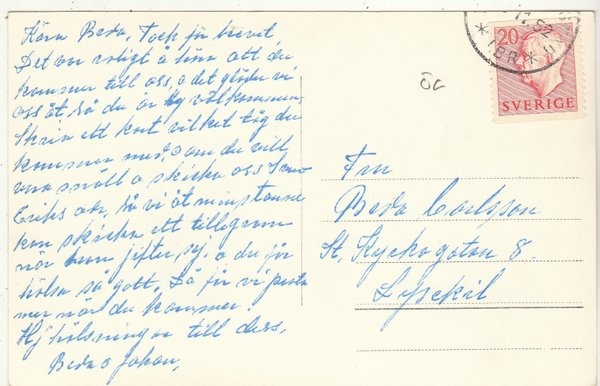 Kära Beda, Tack för brevet
Det var roligt å höra att du
kommer till oss, o det gläder vi
oss åt, så du är hj välkommen,
Skriv ett kort vilket tåg du
kommer med, o om du vill
vara snäll o skicka oss Sven
Eriks adr, så vi åtminstonne
kan skicka ett tillegram
när han jifter sej, o du får
hälsa så gott. Så får vi prata
mer när du kommer.
Hj hälsningar till dess,
Beda o Johan,
Fru
Beda Carlsson
St, Kyrkogatan 8.
Lysekil
20
SVERIGE